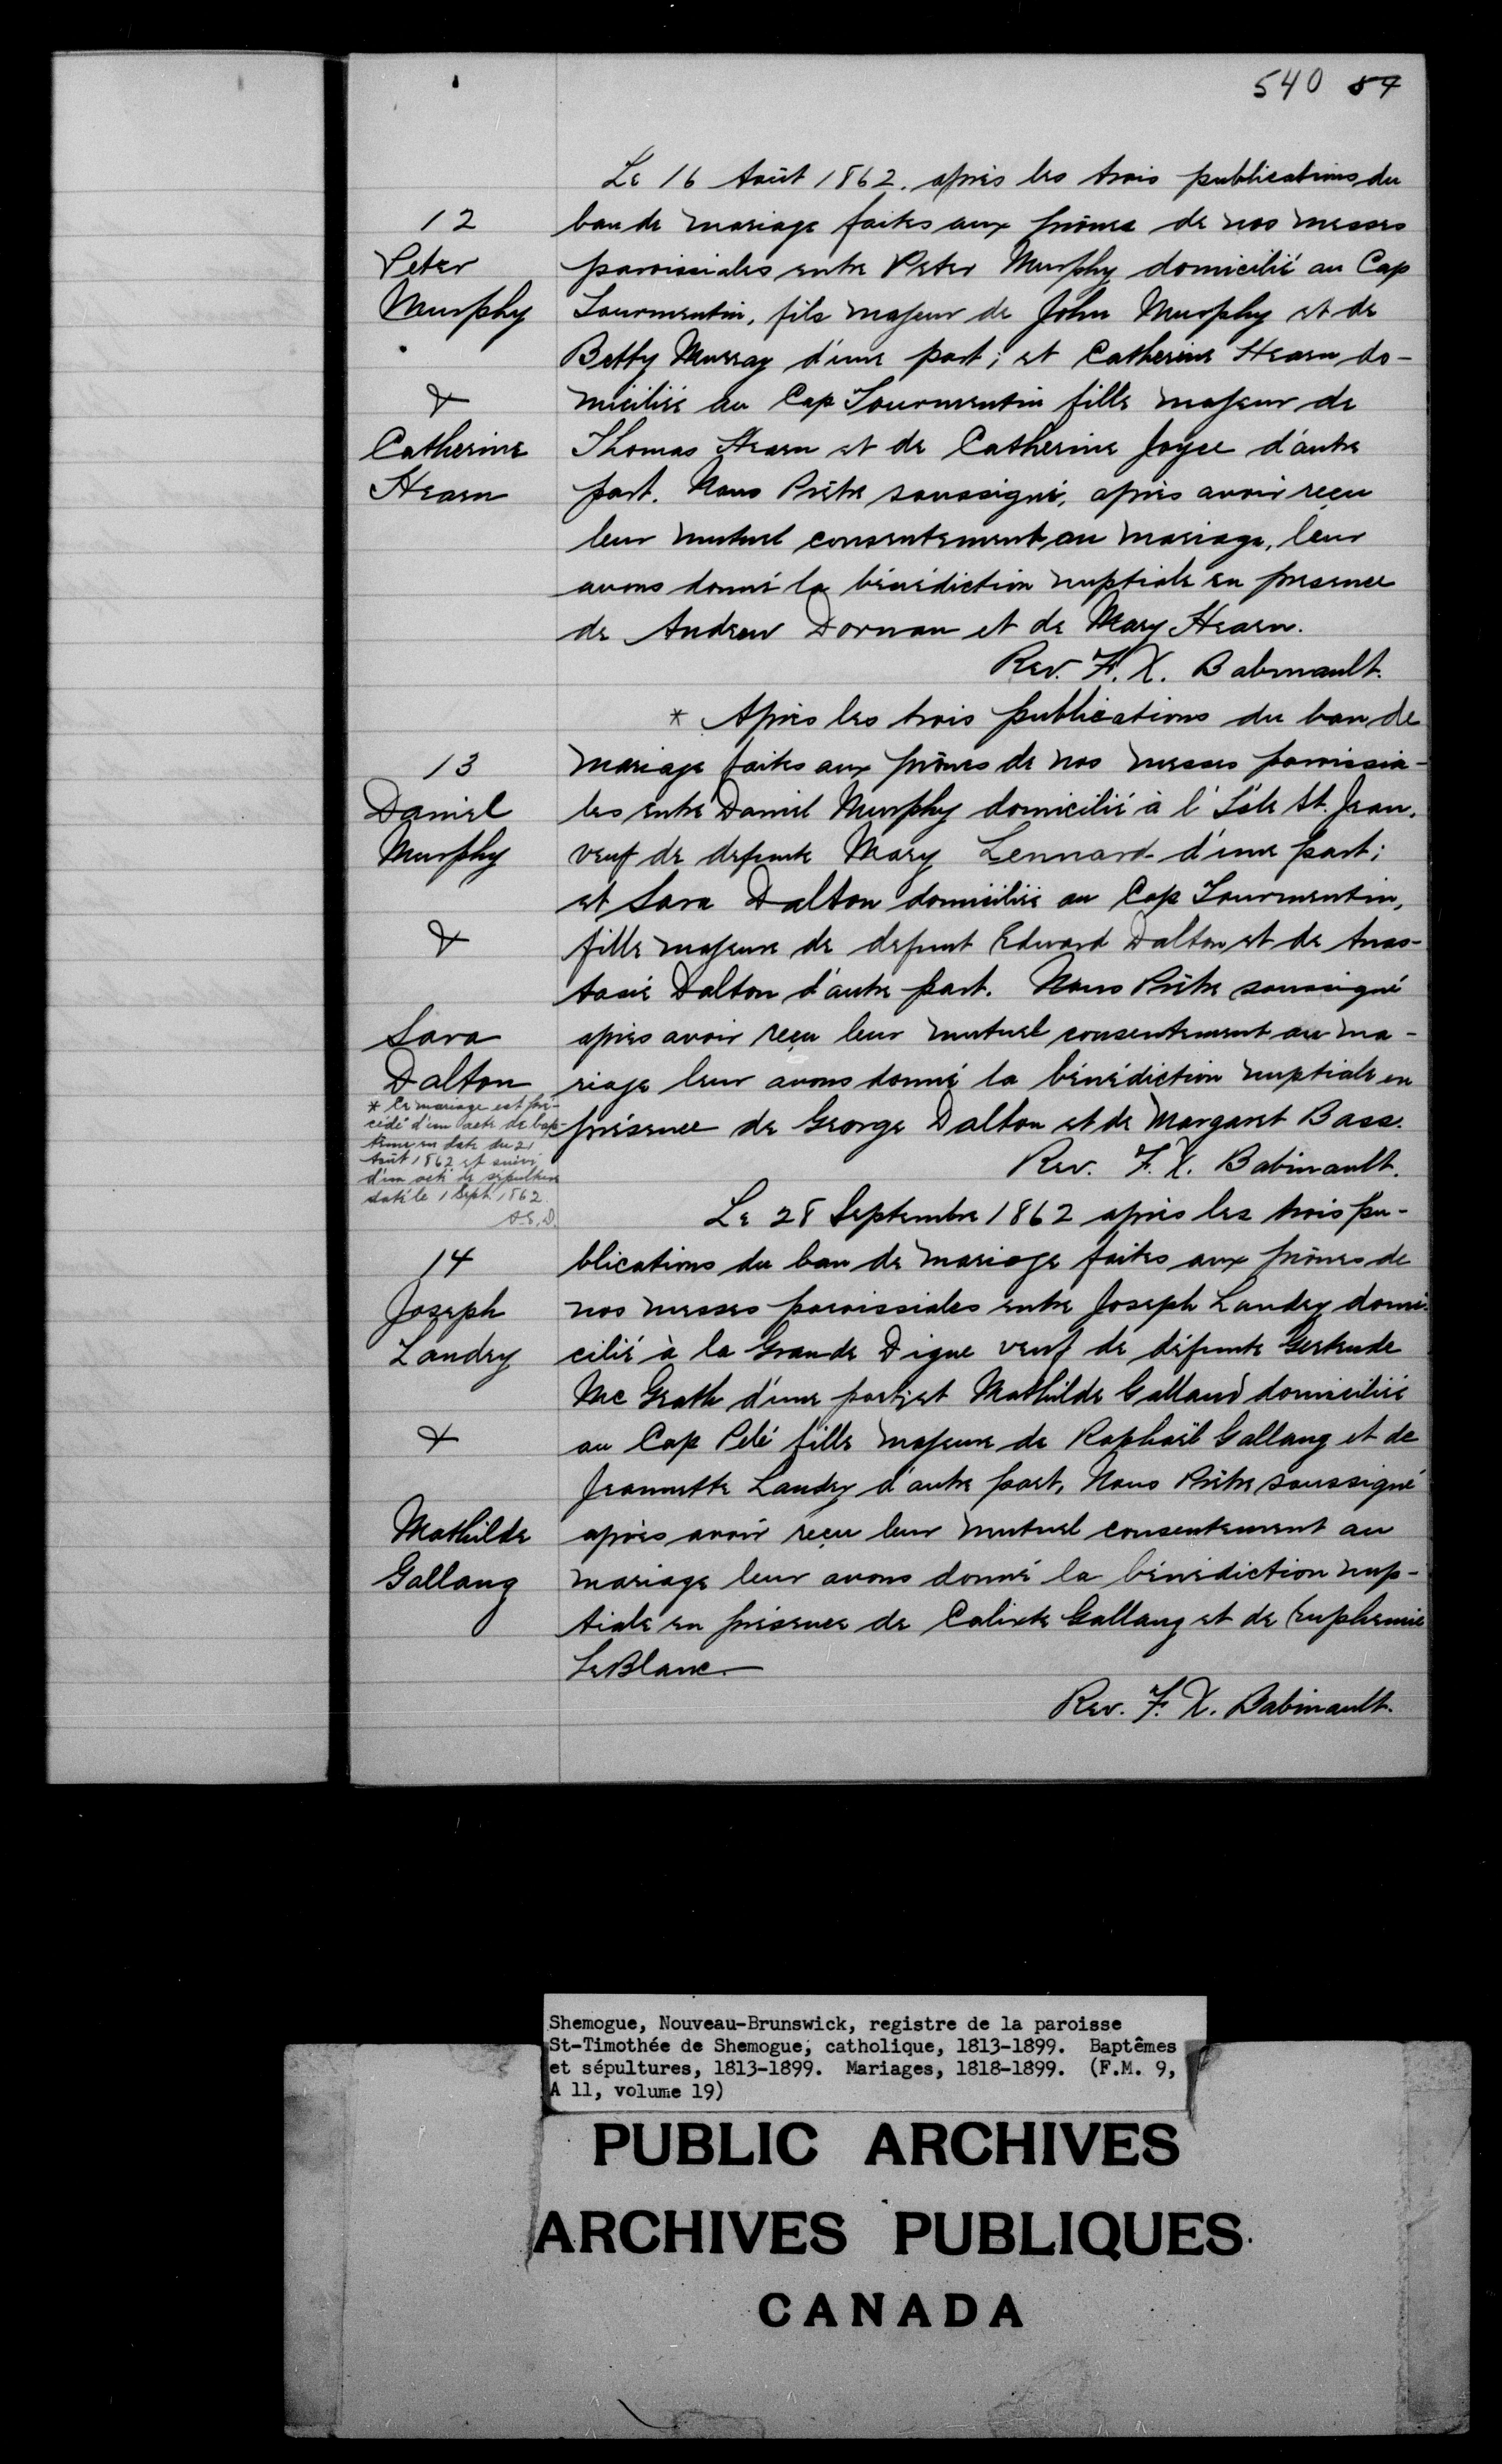 540 87
Le 16 Août 1862. après les trois publications du
12
ban de mariage faites aux prônes de nos messes
Peter
paroissiales entre Peter Murphy domicilié au Cap
Murphy
Tourmentin, fils majeur de John Murphy et de
Betty Murray d'une part; et Catherine Hearn do-
&
miciliée au Cap Tourmentin fille majeur de
Catherine
Thomas Hearn et de Catherine Joyce d'autre
Hearn
part. Nous Prêtre soussigné, après avoir reçu
leur mutuel consentement au mariage, leur
avons donné la bénédiction nuptiale en presence
de Andrew Dornan et de Mary Hearn.
Rev. F. X. Babinault.
* Après les trois publications du ban de
13
mariage faites aux prônes de nos messes paroissia-
Daniel
les entre Daniel Murphy domicilié à l'Isle St. Jean,
Murphy
veuf de defunte Mary Lennard d'une part;
et Sara Dalton domiciliée au Cap Tourmentin,
&
fille majeure de defunt Edward Dalton et de Anas-
tasie Dalton d'autre part. Nous Prêtre soussigné
Sara
après avoir reçu leur mutuel consentement au ma-
Dalton
riage leur avons donné la bénédiction nuptiale en
présence de George Dalton et de Margaret Bass.
* Ce mariage est pré-
cédé d'un acte de bap-
tême en date du 21
Août 1862 et suivi
d'un acte de sépulture
daté le 1 Sept. 1862.
Rev. F. X. Babinault.
Le 28 Septembre 1862 après les trois pu-
14
blications du ban de mariage faites aux prônes de
Joseph
nos messes paroissiales entre Joseph Landry domi-
Landry
cilié à la Grande Digue veuf de défunte Gertrude
Mc Grath d'une part; et Mathilde Galland domiciliée
&
au Cap Pelé fille majeure de Raphaël Gallang et de
Jeannette Landry d'autre part, Nous Prêtre soussigné
Mathilde
après avoir reçu leur mutuel consentement au
Gallang
mariage leur avons donné la bénédiction nup-
tiale en présence de Calixte Gallang et de Euphemie
LeBlanc
Rev. F. X. Babinault.
Shemogue, Nouveau-Brunswick, registre de la paroisse
St-Timothée de Shemogue; catholique, 1813-1899. Baptêmes
et sépultures, 1813-1899. Mariages, 1818-1899. (F.M. 9,
A 11, volume 19)
PUBLIC ARCHIVES
ARCHIVES PUBLIQUES
CANADA